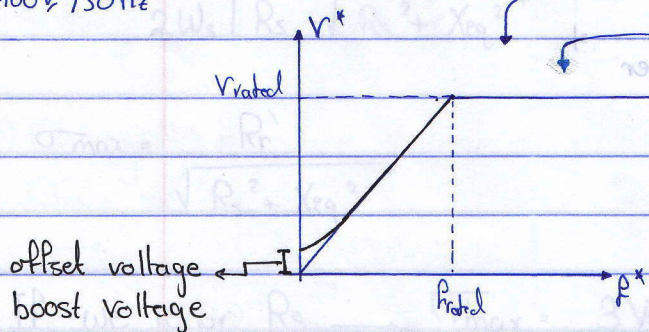 V*
Vrated
offset voltage
boost voltage
frated
f*